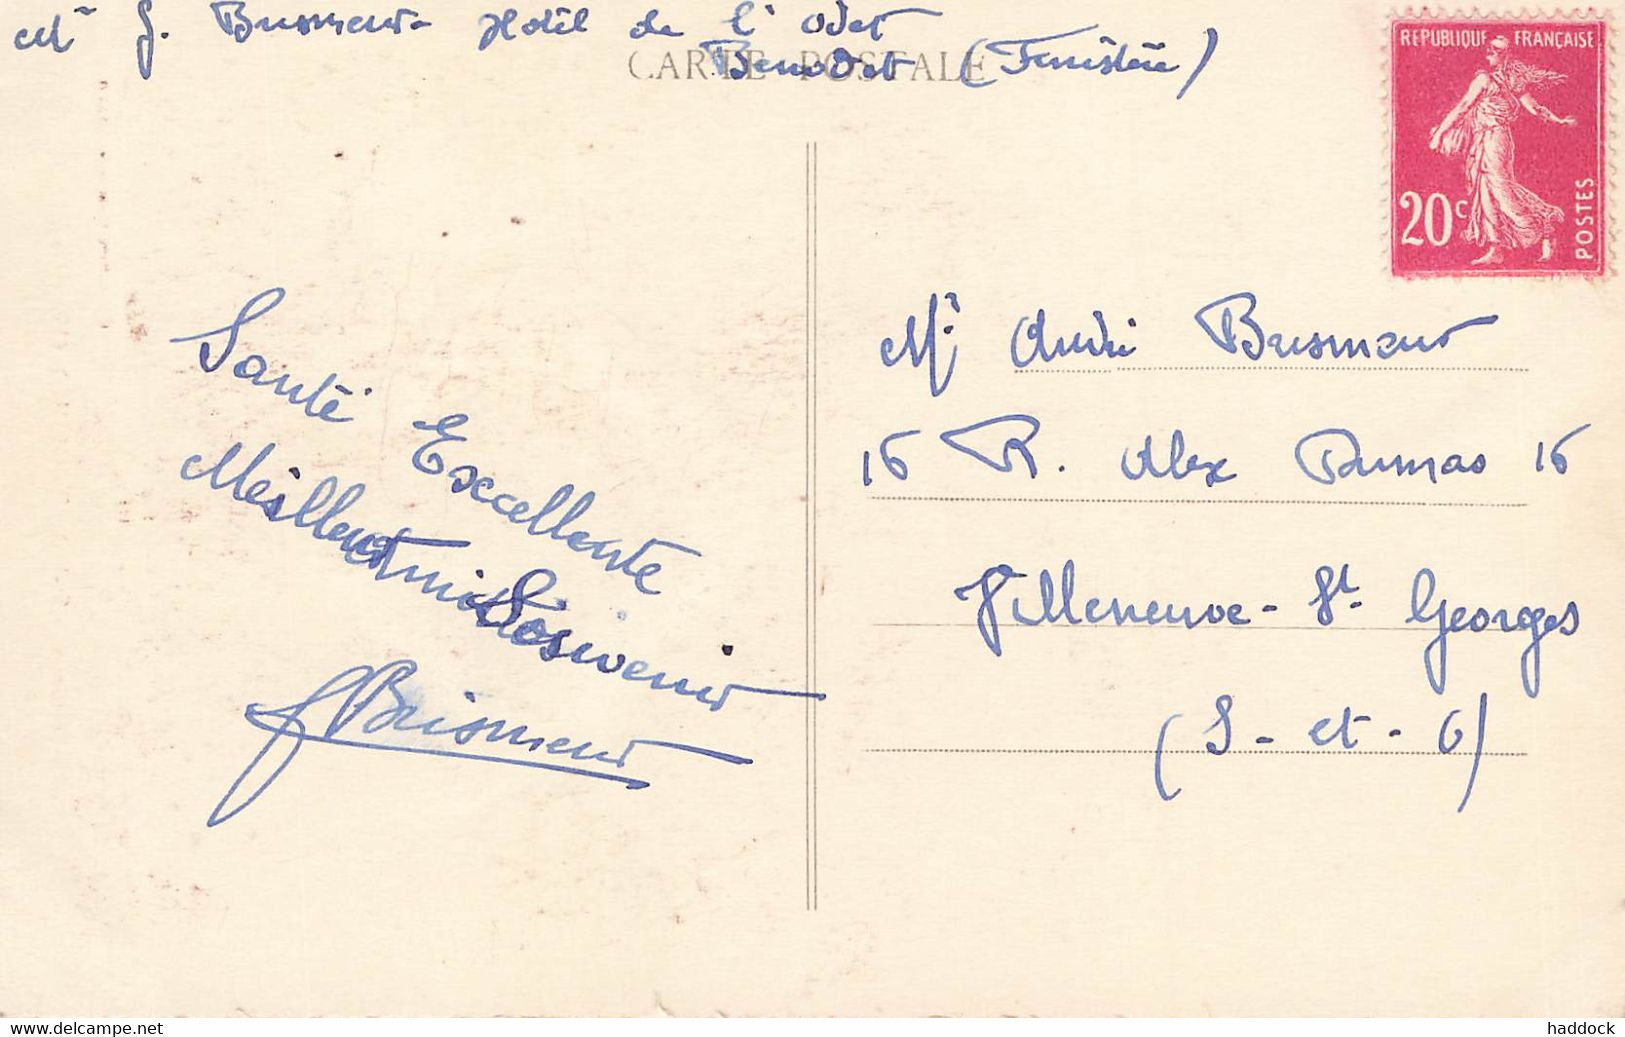 Mr J. Brismeur Hôtel de l'Odet
Benodet (Finistère)
CARTE POSTALE
REPUBLIQUE FRANÇAISE
20c
POSTES
Santé Excellente
Meilleur Souvenir
J Brismeur
Mr André Brismeur
16 R. Alex Dumas 16
Villeneuve-St-Georges
(S-et-O)
www.delcampe.net
haddock